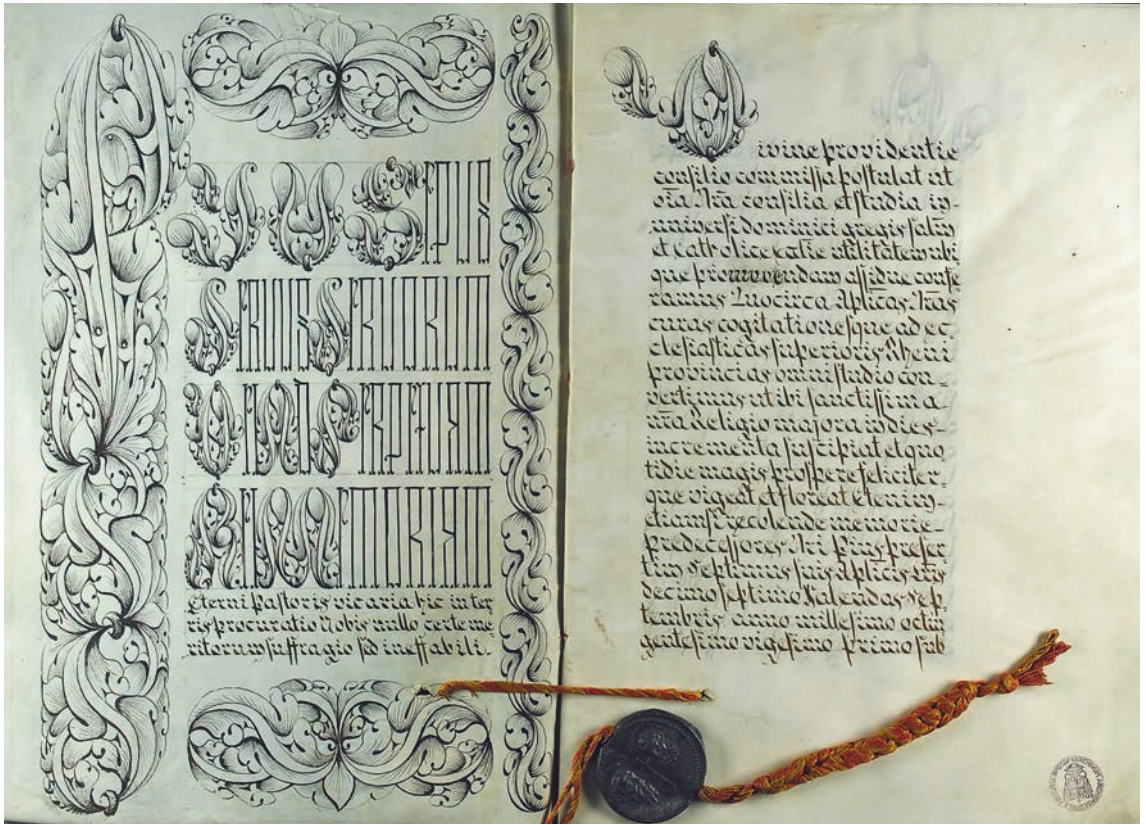 PIUS EPUS
SERVUS SERVORUM
DEI AD PERPETUAM
REI MEMORIAM
Eterni Pastoris vicaria hic in ter
ris procuratio Nobis nullo certe me
ritorum suffragio sed ineffabili.
Divine providentie
consilio commissa postulat ut
oīa Nrā consilia et studia in-
universi dominici gregis salūm
et catholice ecclie utilitatem ubi
que promovendam assidue confe
ramus Quocirca Aplicas Nrās
curas cogitationesque ad ec
clesiasticas superioris Rheni
provincias omni studio con-
vertimus ut ibi sanctissima
nrā Religio majora in dies-
incrementa suscipiat et quo
tidie magis prospere feliciter
que vigeat et floreat etenim
etiamsi recolende memorie-
predecessores Nri Pius preser
tim Septimus suis Aplicis Lris
decimo septimo Kalendas Sep
tembris anno millesimo octin
gentesimo vigesimo primo sub